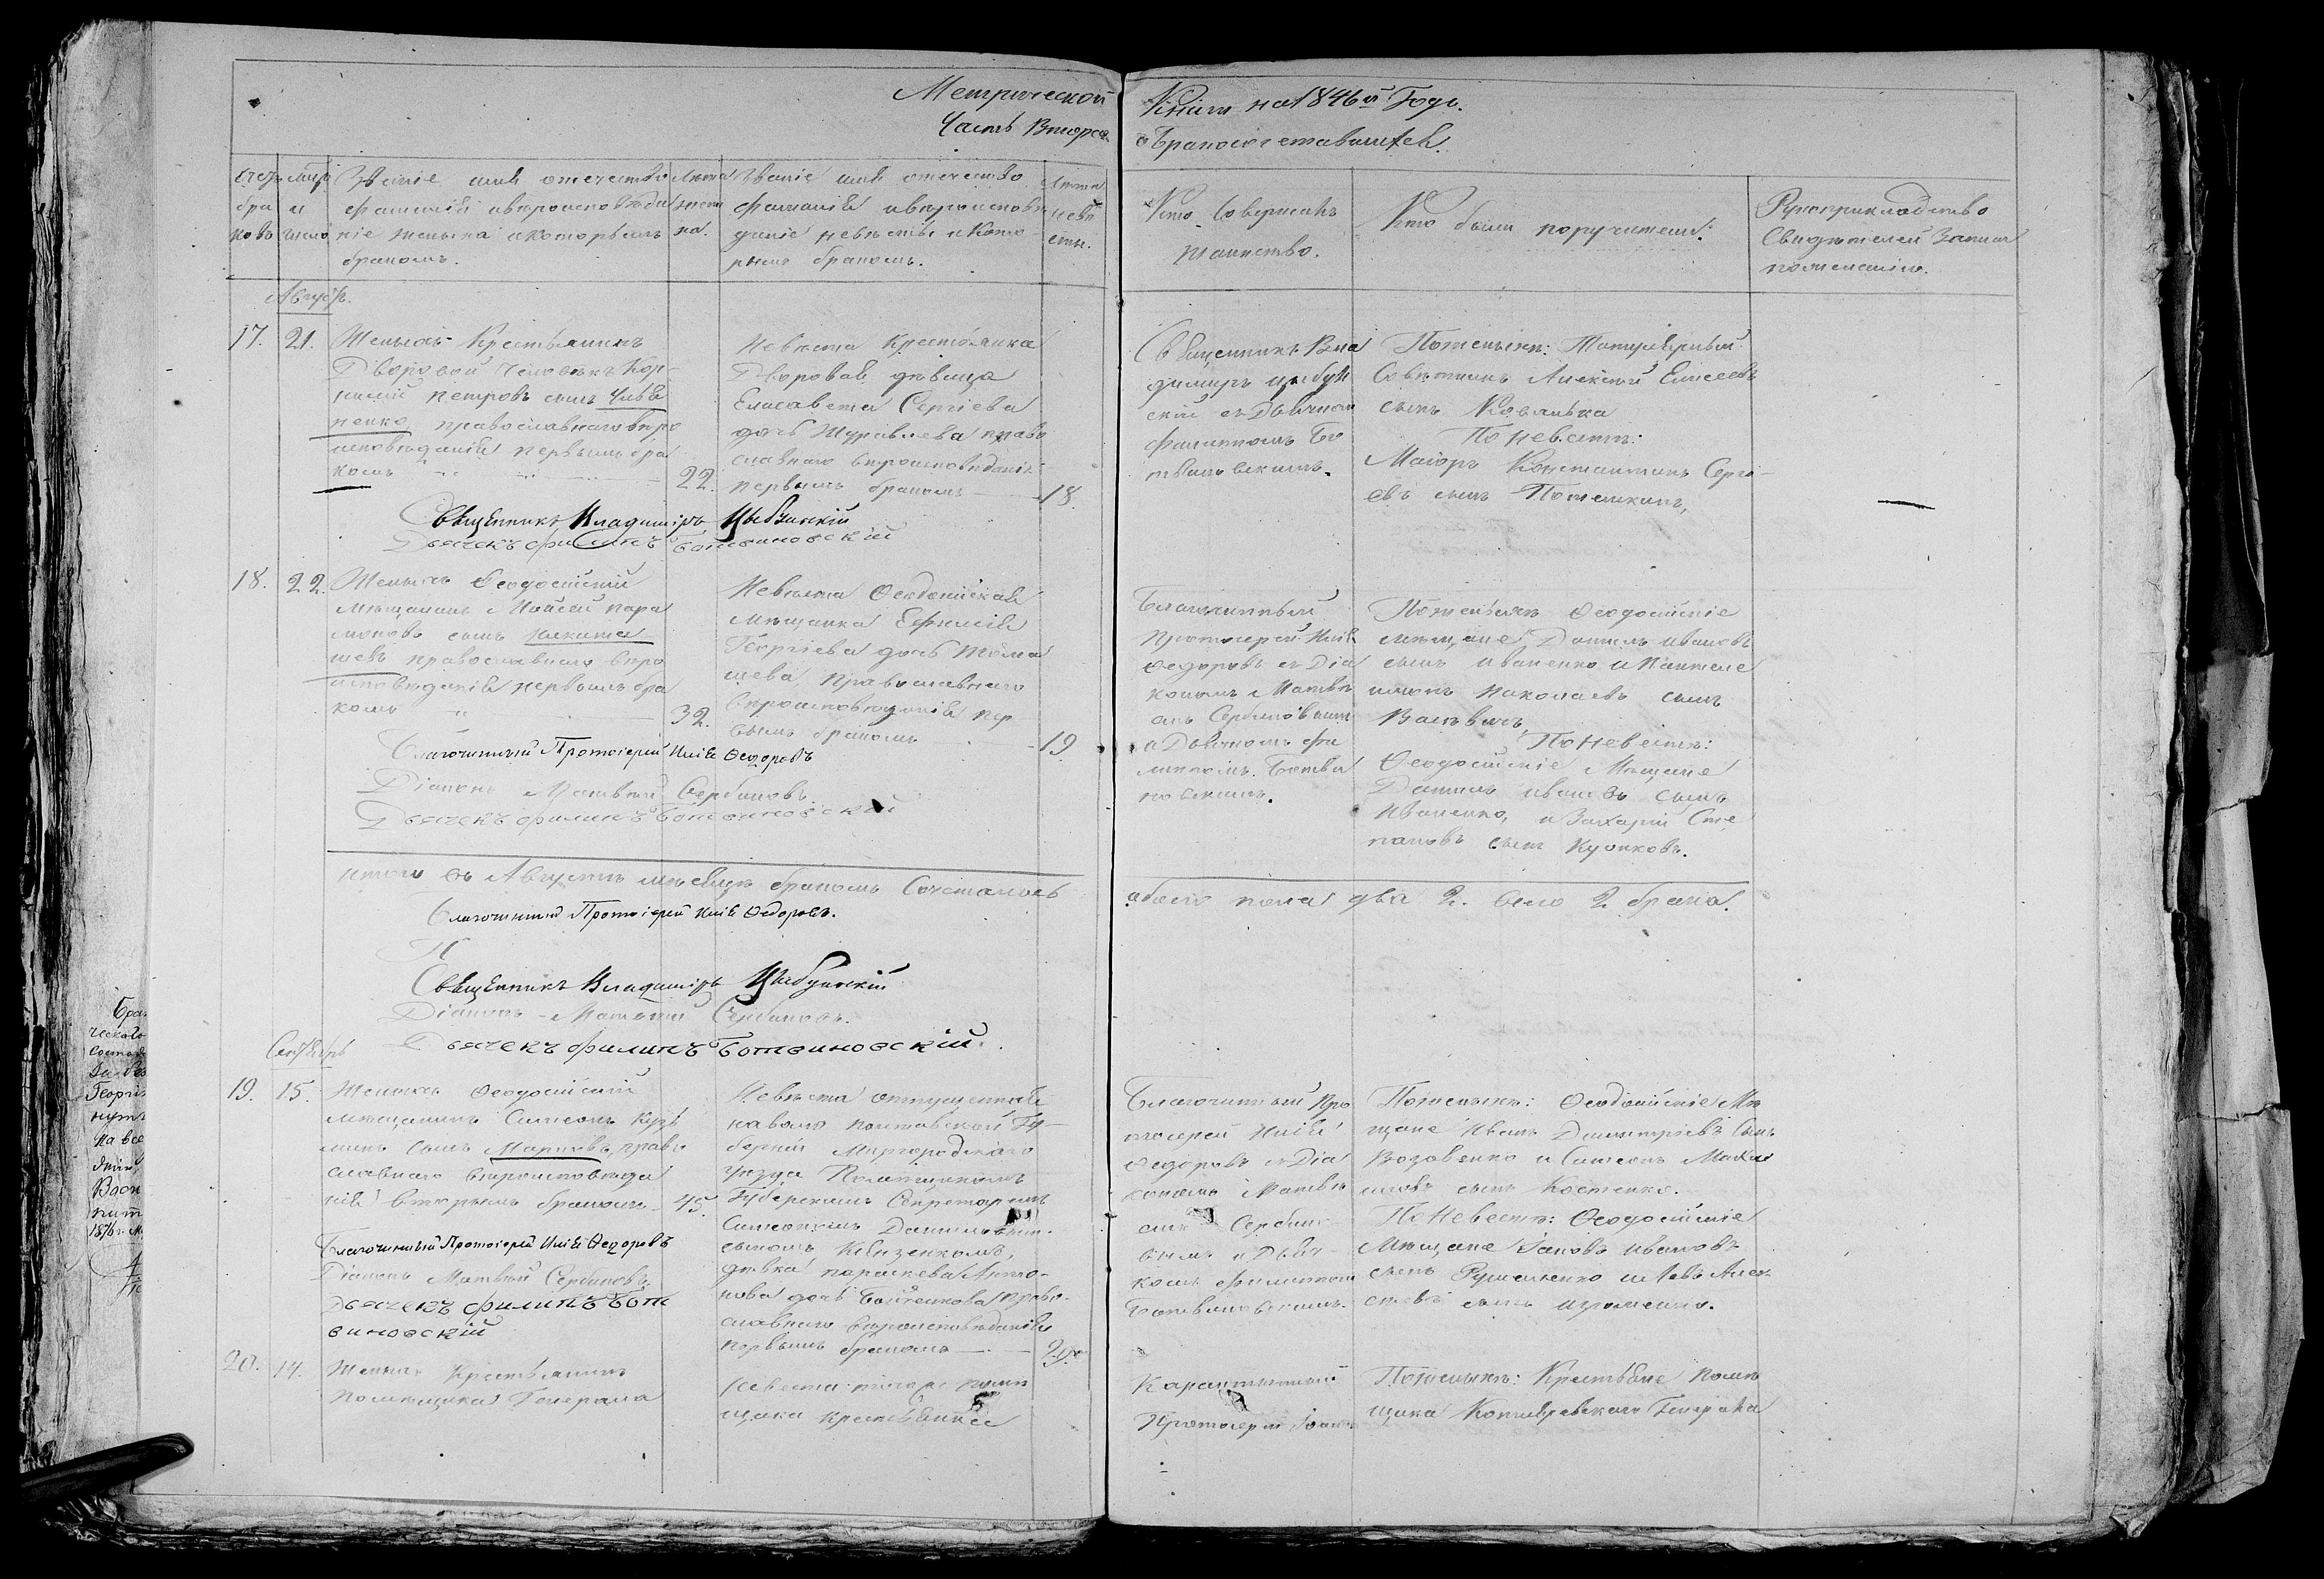 Метрической Книги на 1846й Годъ.
Часть Вторая о бракосочетавшихся.
Счетъ браковъ
Мѣс и число
Званіе имя отечество
фамилія и вѣроисповѣда
ніе жениха и которымъ
бракомъ.
Лета жени
ха.
Званіе имя отечество
фамилія и вѣроисповѣ
даніе невѣсты и кото
рымъ бракомъ.
Лета
невѣ
сты.
Кто совершалъ
таинство.
Кто были поручители:
Рукоприкладство
Свидѣтелей записи
по желанію.
Августъ.
17.
21.
Женихъ Крестьянинъ
Дворовой человѣкъ Кор-
нилій Петровъ сынъ
ненко, православнаго вѣро
исповѣданія первымъ бра
комъ
22.
Невѣста Крестьянка
Дворовая дѣвица
Елисавета Сергіева
дочь Журавлева право
славнаго вѣроисповѣданія
первымъ бракомъ
18.
Священникъ Вла
димиръ Цыбул
скій съ Дьячкомъ
Филиппомъ Бо
твиновскимъ.
По женихѣ: Титулярный
Совѣтникъ Алексѣй Елисеевъ
сынъ
По Невѣстѣ:
Маіоръ Константинъ Серги-
евъ сынъ Потемкинъ,
Священникъ Владиміръ Цыбульскій
Дьячекъ Филипъ Ботвиновскій
18.
22.
Женихъ Ѳеодосійскій
мѣщанинъ Моисей Пара
моновъ сынъ Никита
шевъ православнаго вѣро
исповѣданія первымъ бра
комъ
32.
Невѣста Ѳеодосійская
мѣщанка Ефимія
Георгіева дочь Тома
шева православнаго
вѣроисповѣданія пер
вымъ бракомъ
19
Благочинный
Протоіерей Илія
Ѳедоровъ съ Діа
кономъ Матвѣ
емъ Сербиновымъ
и Дьячкомъ Фи
липомъ Ботви
новскимъ.
По женихѣ Ѳеодосійскіе
мѣщане Даніилъ Ивановъ
сынъ Иваненко и Пантеле
имонъ Николаевъ сынъ
По Невѣстѣ:
Ѳеодосійскіе Мѣщане
Даніилъ Ивановъ сынъ
Иваненко, и Захарій Сте
пановъ сынъ Куликовъ.
Благочинный Протоіерей Илія Ѳеодоровъ
Діаконъ Матвѣй Сербиновъ.
Дьячекъ Филипъ Ботвиновскій
Итого въ Августѣ мѣсяцѣ бракомъ Сочеталось обоего пола два 2. всего 2 брака.
Благочинный Протоіерей Илія Ѳедоровъ.
Священникъ Владиміръ Цыбульскій
Діаконъ Матвѣй Сербиновъ.
Дьячекъ Филипъ Ботвиновскій.
Сентябрь
19.
15.
Женихъ Ѳеодосійскій
мѣщанинъ Симеонъ Кузь
минъ сынъ Мартовъ, право
славнаго вѣроисповѣда
нія вторымъ бракомъ
45.
Невѣста отпущенная
на волю Полтавской Гу-
берніи Миргородскаго
уѣзда Помѣщикомъ
Губернскимъ Секретаремъ
Симеономъ Даниловымъ
сыномъ
дѣвка Параскева Анто-
нова дочь право-
славнаго вѣроисповѣданія
первымъ бракомъ
Благочинный Про
тоіерей Илія
Ѳедоровъ съ Діа
кономъ Матвѣ
емъ Сербино
вымъ и Дьяч
комъ Филипомъ
Ботвиновскимъ.
По женихѣ: Ѳеодосійскіе Мѣ
щане Иванъ Димитріевъ сынъ
и Симеонъ Михаи
ловъ сынъ Костенко.
По Невѣстѣ: Ѳеодосійскіе
Мѣщане Іаковъ Ивановъ
сынъ и Левъ Алек
сѣевъ сынъ
Благочинный Протоіерей Илія Ѳеодоровъ
Діаконъ Матвѣй Сербиновъ.
Дьячекъ Филипъ Бот
виновскій
20.
14.
Женихъ Крестьянинъ
помѣщика Генерала
Невѣста тогоже помѣ
щика крестьянка
Карантинный
Протоіерей Іоаннъ
По женихѣ: Крестьяне помѣ
щика Котляревскаго Генерала